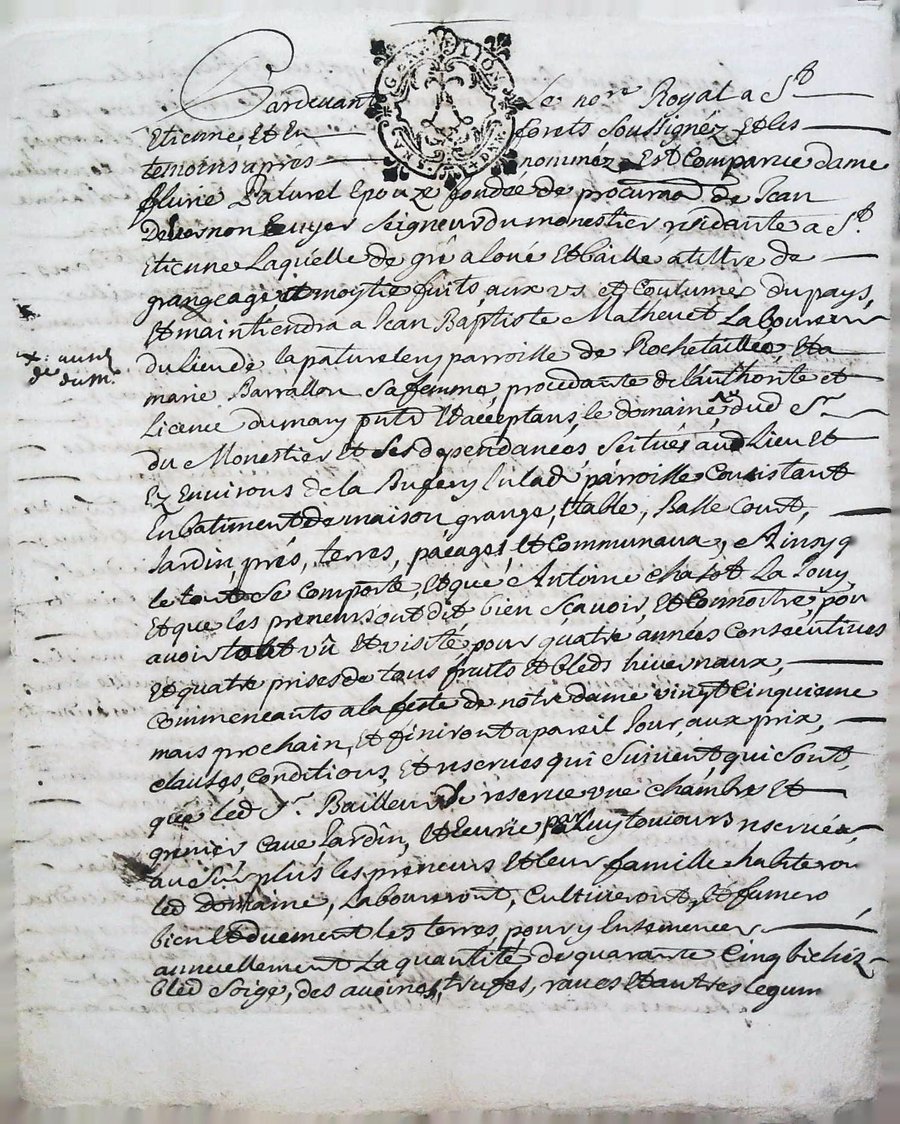 Pardevant Le no.re Royal a S.t
Etienne, Et En forets soussignéz Et les
temoins apres nomméz, Est Comparue dame
fleurie Paturel Epouze fondée de procura.on de Jean
Devernon Ecuyer Seigneur du monestier residante a S.t
Etienne Laquelle de gré a loué Et baillé a tiltre de
grangeage et moytié fuits, aux us et Coutumes du pays,
Et maintiendra a Jean Baptiste Mathevet Laboureur
du Lieu de la paturelery parroille de Rochetaillée, Et a
marie Barrallon sa femme, procedante de l'authorité et
Licence du mary pnts Et acceptans, le domaine dud S.r
du Monestier Et ses dependances scitués aud Lieu Et
Ez Environs de la Bufery En lad parroille Consistant
En batiment de maison, grange, Etable, Basse Court,
Jardin, prés, terres, pacages, Et Communaux, Ainsy q
le tout se Comporte, Et que Antoine chafot La Jouy,
Et que les preneurs ont dit bien Scavoir, Et Connoitre, pour
avoir tout vû Et visité, pour quatre années Consecutives
Et quatre prises de tous fruits Et bleds hivernaux,
Commencants a la feste de notre dame vingt Cinquieme
mars prochain, Et finiront a pareil Jour, aux prix,
clauses, Conditions, Et reserves qui suivent qui sont,
que led S.r Bailleur se reserve une chambre Et
grenier, Cave Jardin, Et Ecurie par luy toujours reservée
au surplus les preneurs Et leur famille habiteron
led domaine, Laboureront, Cultiveront, Et fumero
bien Et duement les terres, pour y Ensemencer
annuellement La quantité de quarante Cinq bichéz
bled Soige, des avoines, trufes, raves Et autres legum